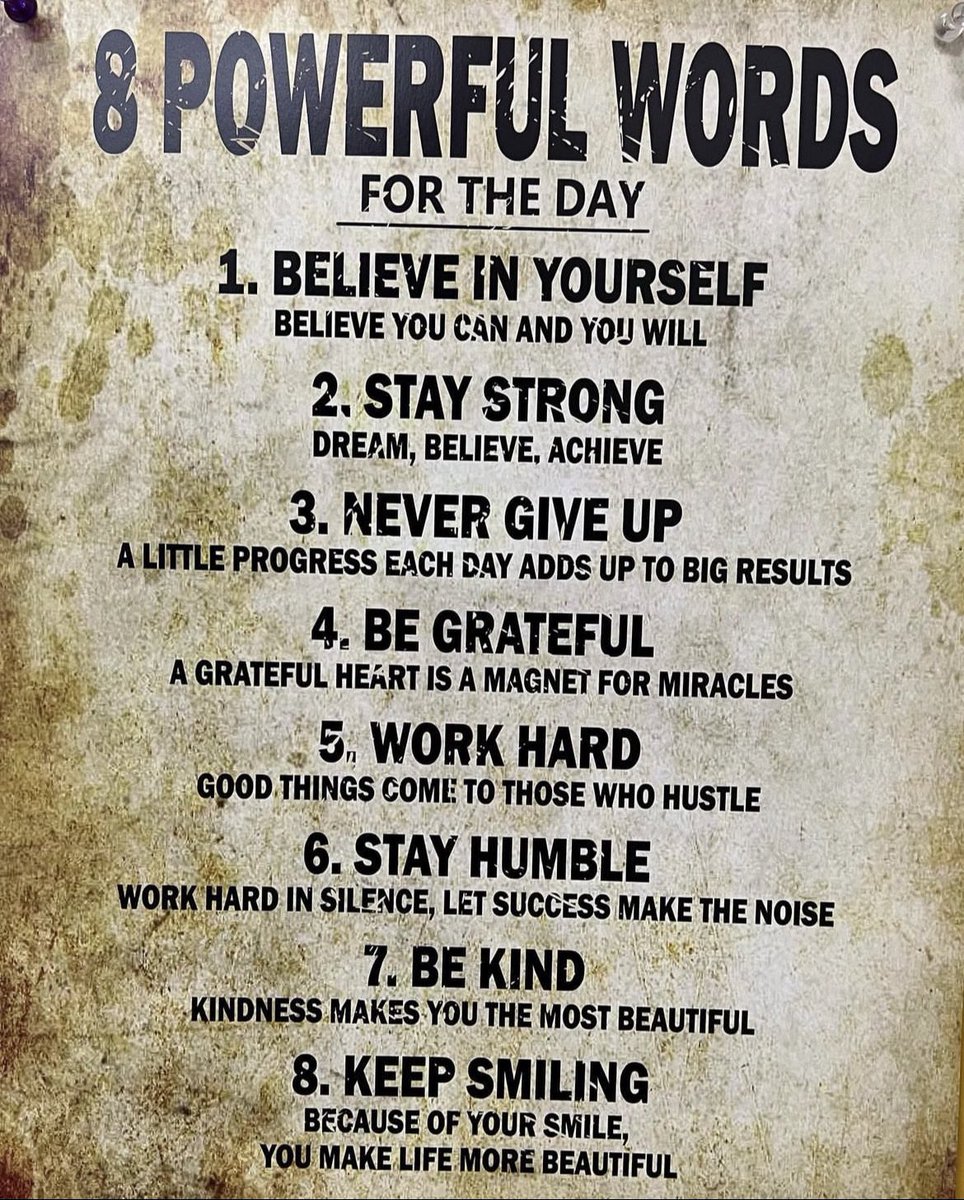 8 POWERFUL WORDS
FOR THE DAY
1. BELIEVE IN YOURSELF
BELIEVE YOU CAN AND YOU WILL
2. STAY STRONG
DREAM, BELIEVE, ACHIEVE
3. NEVER GIVE UP
A LITTLE PROGRESS EACH DAY ADDS UP TO BIG RESULTS
4. BE GRATEFUL
A GRATEFUL HEART IS A MAGNET FOR MIRACLES
5. WORK HARD
GOOD THINGS COME TO THOSE WHO HUSTLE
6. STAY HUMBLE
WORK HARD IN SILENCE, LET SUCCESS MAKE THE NOISE
7. BE KIND
KINDNESS MAKES YOU THE MOST BEAUTIFUL
8. KEEP SMILING
BECAUSE OF YOUR SMILE,
YOU MAKE LIFE MORE BEAUTIFUL